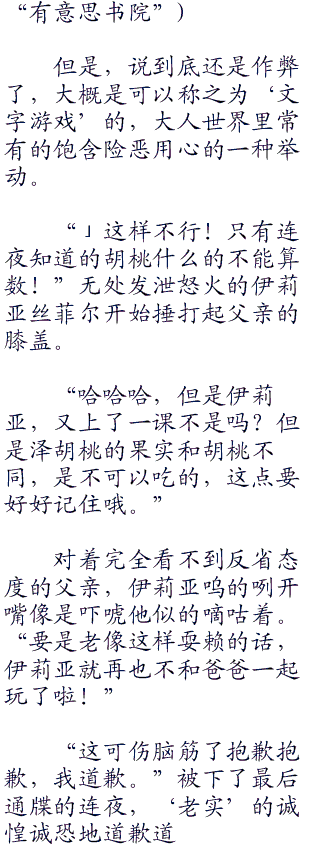 “有意思书院”)
但是，说到底还是作弊
了，大概是可以称之为‘文
字游戏’的，大人世界里常
有的饱含险恶用心的一种举
动。
“」这样不行！只有连
夜知道的胡桃什么的不能算
数！”无处发泄怒火的伊莉
亚丝菲尔开始捶打起父亲的
膝盖。
“哈哈哈，但是伊莉
亚，又上了一课不是吗？但
是泽胡桃的果实和胡桃不
同，是不可以吃的，这点要
好好记住哦。”
对着完全看不到反省态
度的父亲，伊莉亚呜的咧开
嘴像是吓唬他似的嘀咕着。
“要是老像这样耍赖的话，
伊莉亚就再也不和爸爸一起
玩了啦！”
“这可伤脑筋了抱歉抱
歉，我道歉。”被下了最后
通牒的连夜，‘老实’的诚
惶诚恐地道歉道